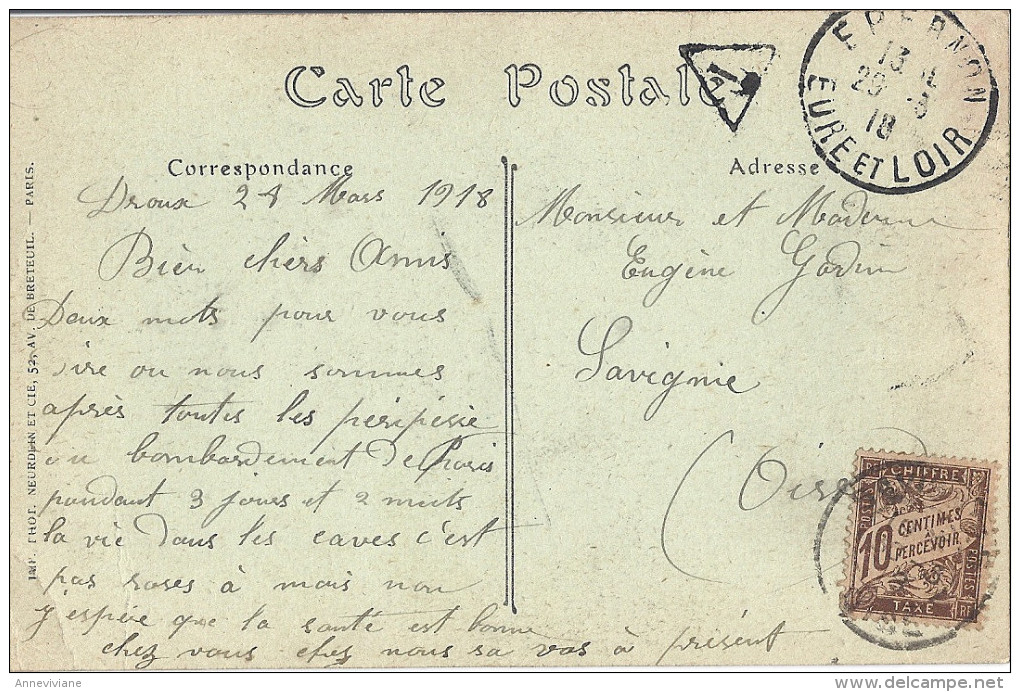 Carte Postale
T
EPERNON
13
29 3
18
EURE ET LOIR
Correspondance
Adresse
Droux 28 Mars 1918
Bien chers Amis
Deux mots pour vous
dire ou nous sommes
après toutes les péripésie
du bombardement de Paris
pandant 3 jours et 2 nuits
la vie dans les caves c'est
pas roses à mais non
J'espère que la santé est bonne
chez vous chez nous sa vas à présent
Monsieur et Madame
Eugène Godin
Savignie
(Oise)
CHIFFRE
POSTES
10 CENTIMES
À
PERCEVOIR
POSTES
TAXE
RF
IMP. PHOT. NEURDEIN ET CIE, 52, AV. DE BRETEUIL. — PARIS.
Anneviviane
delcampe.net